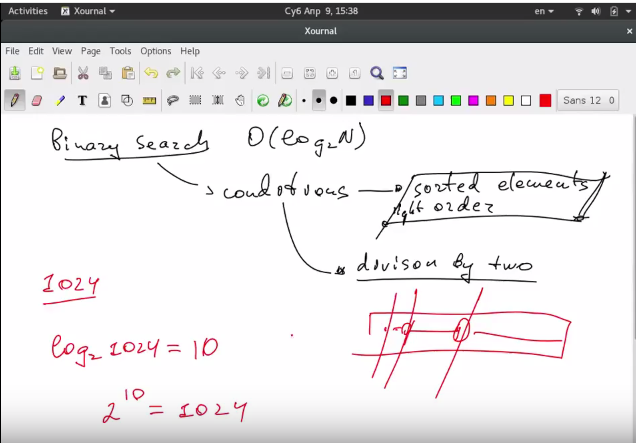 Activities Xournal Суб Апр 9, 15:38 en
Xournal
File Edit View Page Tools Options Help
T Sans 12 0
Binary Search O(log₂N)
conditions sorted elements
right order
divison by two
1024
log₂ 1024 = 10
2¹⁰ = 1024